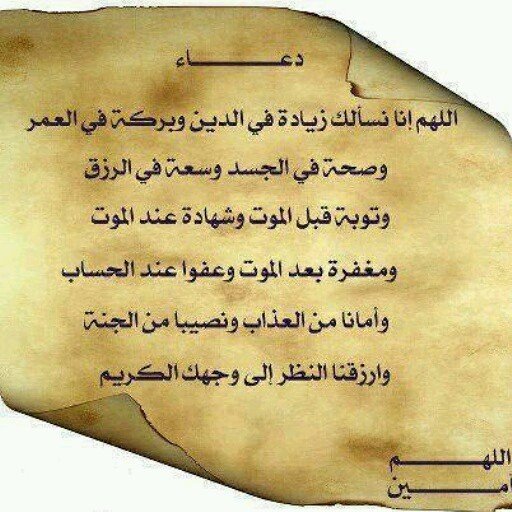 دعـــــــــاء
اللهم إنا نسألك زيادة في الدين وبركة في العمر
وصحة في الجسد وسعة في الرزق
وتوبة قبل الموت وشهادة عند الموت
ومغفرة بعد الموت وعفوا عند الحساب
وأمانا من العذاب ونصيبا من الجنة
وارزقنا النظر إلى وجهك الكريم
اللهـــــــم
أمـــــــين